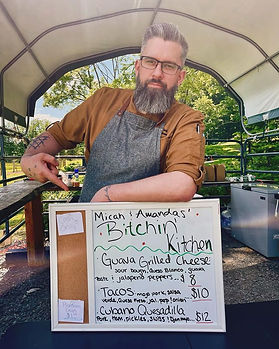 Micah & Amandas'
Bitchin'
Kitchen
Guava Grilled Cheese
sour dough, Queso Blanco, guava
paste & jalapeno peppers... $8
Tacos mojo pork, salsa
verde, Queso Fresco, jal. pep./onion $10
Cubano Quesadilla
Pork, Ham, Pickles, Swiss, $12